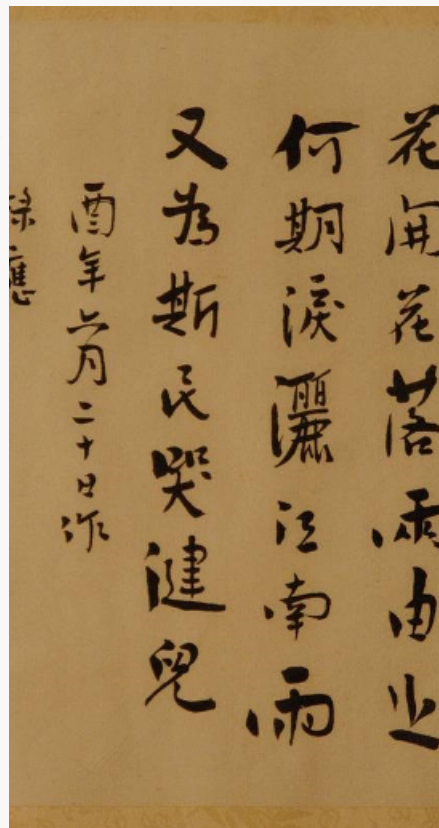 花開花落兩由之
何期淚灑江南雨
又為斯民哭健兒
酉年六月二十日作
録應